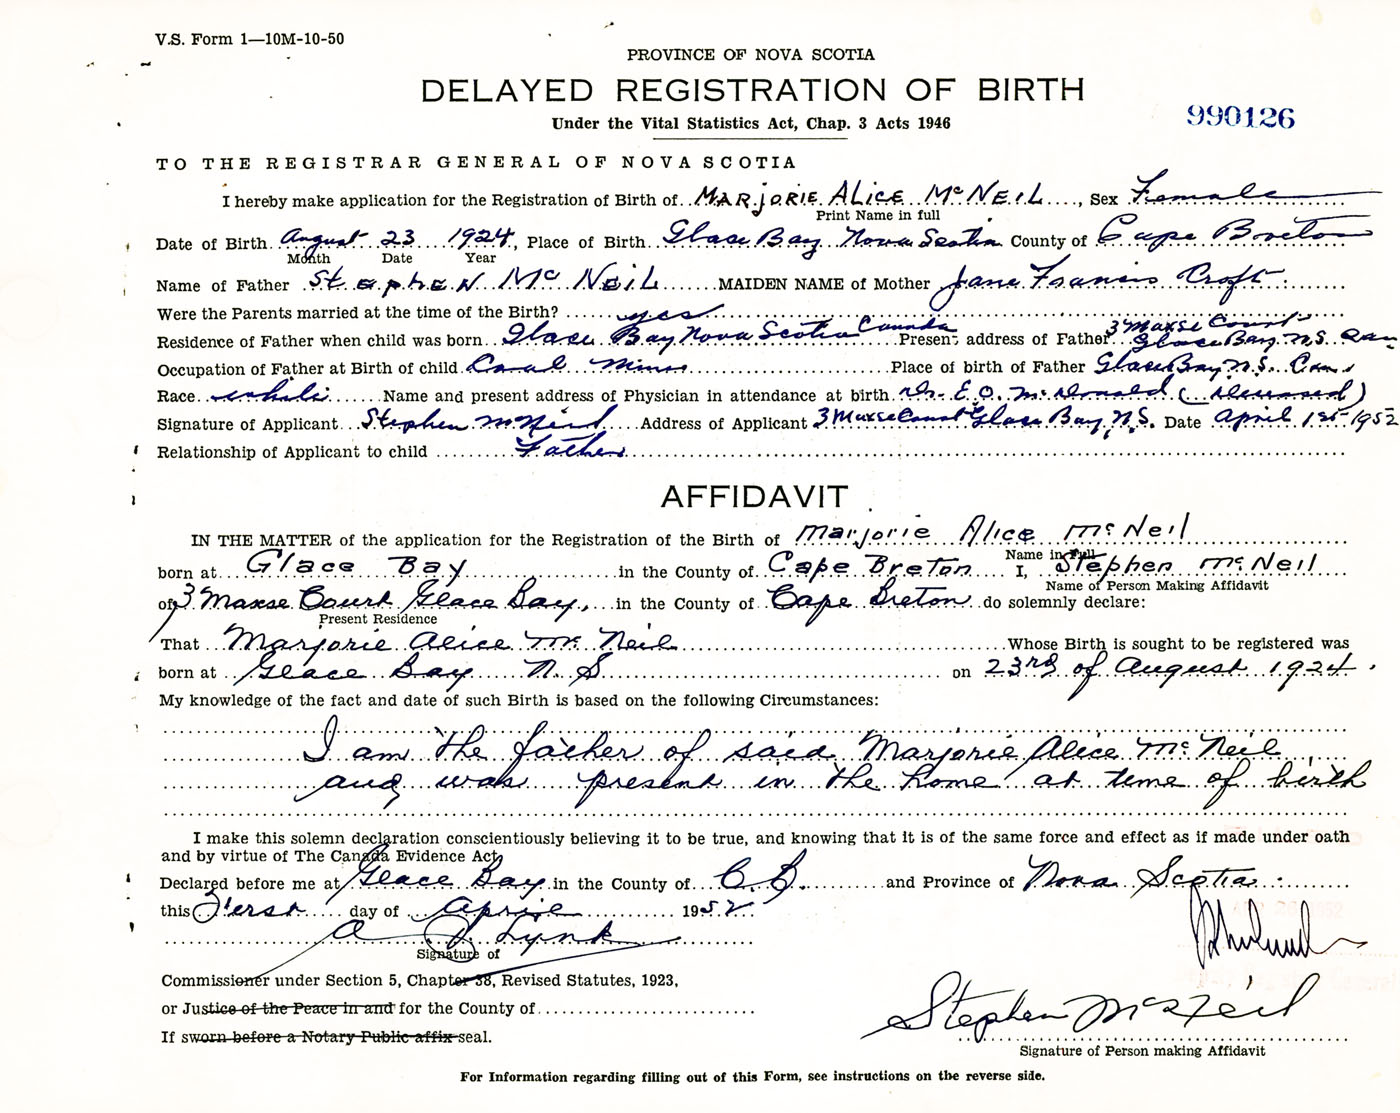 V.S. Form 1—10M-10-50
PROVINCE OF NOVA SCOTIA
DELAYED REGISTRATION OF BIRTH
990126
Under the Vital Statistics Act, Chap. 3 Acts 1946
TO THE REGISTRAR GENERAL OF NOVA SCOTIA
I hereby make application for the Registration of Birth of MARJORIE ALICE McNEIL, Sex Female
Print Name in full
Date of Birth August 23 1924, Place of Birth Glace Bay Nova Scotia County of Cape Breton
Month Date Year
Name of Father STEPHEN McNEIL MAIDEN NAME of Mother Jane Francis Croft
Were the Parents married at the time of the Birth? yes
Residence of Father when child was born Glace Bay Nova Scotia Canada Present address of Father 3 Maxse Court Glace Bay N.S. Can
Occupation of Father at Birth of child Coal Miner Place of birth of Father Glace Bay N.S. Can
Race white Name and present address of Physician in attendance at birth Dr. E.O. McDonald (deceased)
Signature of Applicant Stephen McNeil Address of Applicant 3 Maxse Court Glace Bay, N.S. Date April 1st 1952
Relationship of Applicant to child Father
AFFIDAVIT
IN THE MATTER of the application for the Registration of the Birth of Marjorie Alice McNeil
Name in Full
born at Glace Bay in the County of Cape Breton I, Stephen McNeil
Name of Person Making Affidavit
of 3 Maxse Court Glace Bay, in the County of Cape Breton do solemnly declare:
Present Residence
That Marjorie Alice McNeil Whose Birth is sought to be registered was
born at Glace Bay N.S on 23rd of August 1924.
My knowledge of the fact and date of such Birth is based on the following Circumstances:
I am the father of said Marjorie Alice McNeil
and was present in the home at time of birth
I make this solemn declaration conscientiously believing it to be true, and knowing that it is of the same force and effect as if made under oath
and by virtue of The Canada Evidence Act.
Declared before me at Glace Bay in the County of C.B. and Province of Nova Scotia.
this First day of April 1952
A Lynk
Signature of
Commissioner under Section 5, Chapter 38, Revised Statutes, 1923,
or Justice of the Peace in and for the County of
If sworn before a Notary Public affix seal.
Stephen McNeil
Signature of Person making Affidavit
For Information regarding filling out of this Form, see instructions on the reverse side.